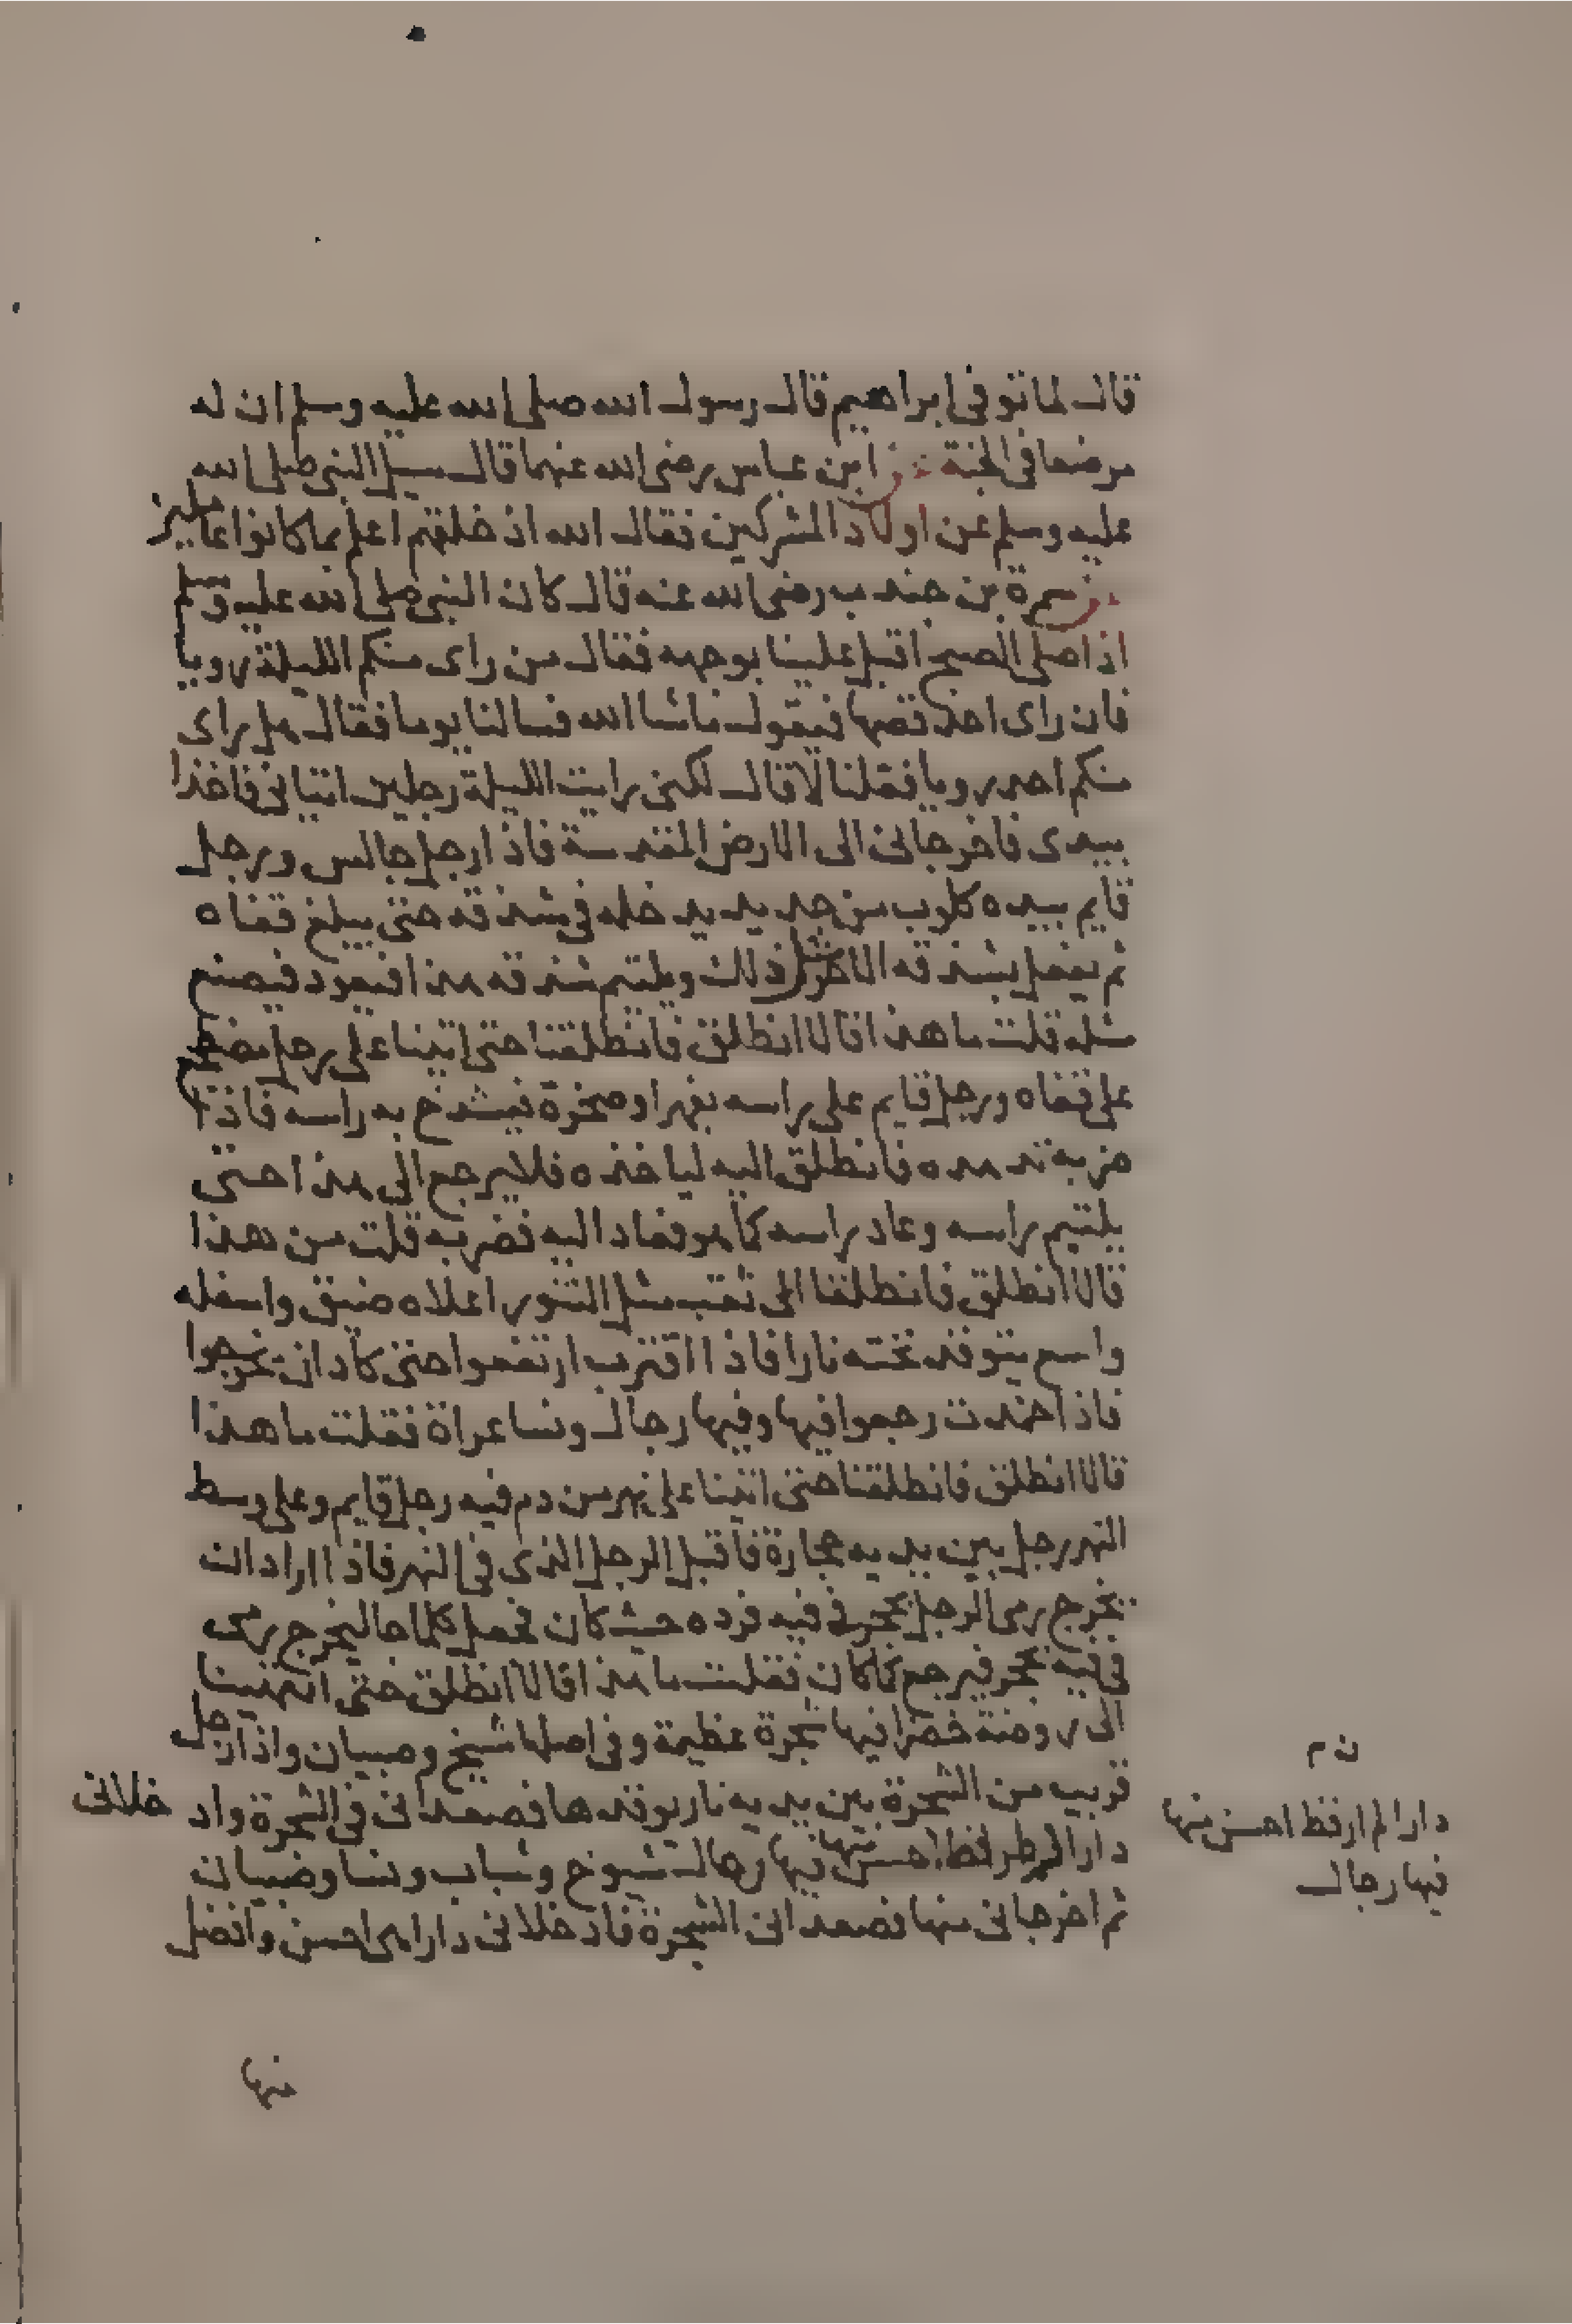 قال لما توفى ابراهيم قال رسول الله صلى الله عليه وسلم ان له
مرضعا فى الجنة ابن عباس رضى الله عنهما قال سيل النبى صلى الله
عليه وسلم عن اولاد المشركين فقال الله اذ خلقهم اعلم بما كانوا عاملين
سمرة بن جندب رضى الله عنه قال كان النبى صلى الله عليه وسلم
اذا صلى الصبح اقبل علينا بوجهه فقال من راى منكم الليلة رويا
فان راى احد قصها فيقول ماشا الله فسالنا يوما فقال هل راى
منكم احد رويا فقلنا لا قال لكنى رايت الليلة رجلين اتيانى فاخذا
بيدى فاخرجانى الى الارض المقدسة فاذا رجل جالس ورجل
قايم بيده كلوب من حديد يدخله فى شدقه حتى يبلغ قفاه
ثم يفعل بشدقه الاخر مثل ذلك ويلتيم شدقه هذا فيعود فيصنع
مثله قلت ما هذا قالا انطلق فانطلقنا حتى اتينا على رجل مضطجع
على قفاه ورجل قايم على راسه بفهر او صخرة فيشدخ به راسه فاذا
ضربه تدهده فانطلق اليه لياخذه فلا يرجع الى هذا حتى
يلتيم راسه وعاد راسه كما هو فعاد اليه فضربه قلت من هذا
قالا انطلق فانطلقنا الى ثقب مثل التنور اعلاه ضيق واسفله
واسع يتوقد تحته نارا فاذا اقترب ارتفعوا حتى كاد ان يخرجوا
فاذا خمدت رجعوا فيها وفيها رجال ونسا عراة فقلت ما هذا
قالا انطلق فانطلقنا حتى اتينا على نهر من دم فيه رجل قايم وعلى وسط
النهر رجل بين يديه حجارة فاقبل الرجل الذى فى النهر فاذا اراد ان
يخرج رمى الرجل بحجر فى فيه فرده حيث كان فجعل كلما جا ليخرج رمى
فى فيه بحجر فيرجع كما كان فقلت ما هذا قالا انطلق حتى انتهينا
الى روضة خضرا فيها شجرة عظيمة وفى اصلها شيخ وصبيان واذا رجل
قريب من الشجرة بين يديه نار يوقدها فصعدا بى فى الشجرة وادخلانى
دارا لم ار قط احسن منها فيها رجال شيوخ وشباب ونسا وصبيان
ثم اخرجانى منها فصعدا بى الشجرة فادخلانى دارا هى احسن وافضل
منها
ن م
دارا لم ار قط احسن منها
فيها رجال